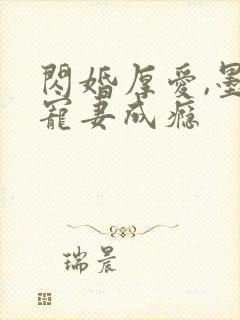 閃婚厚愛,墨
寵妻成癮
瑞晨